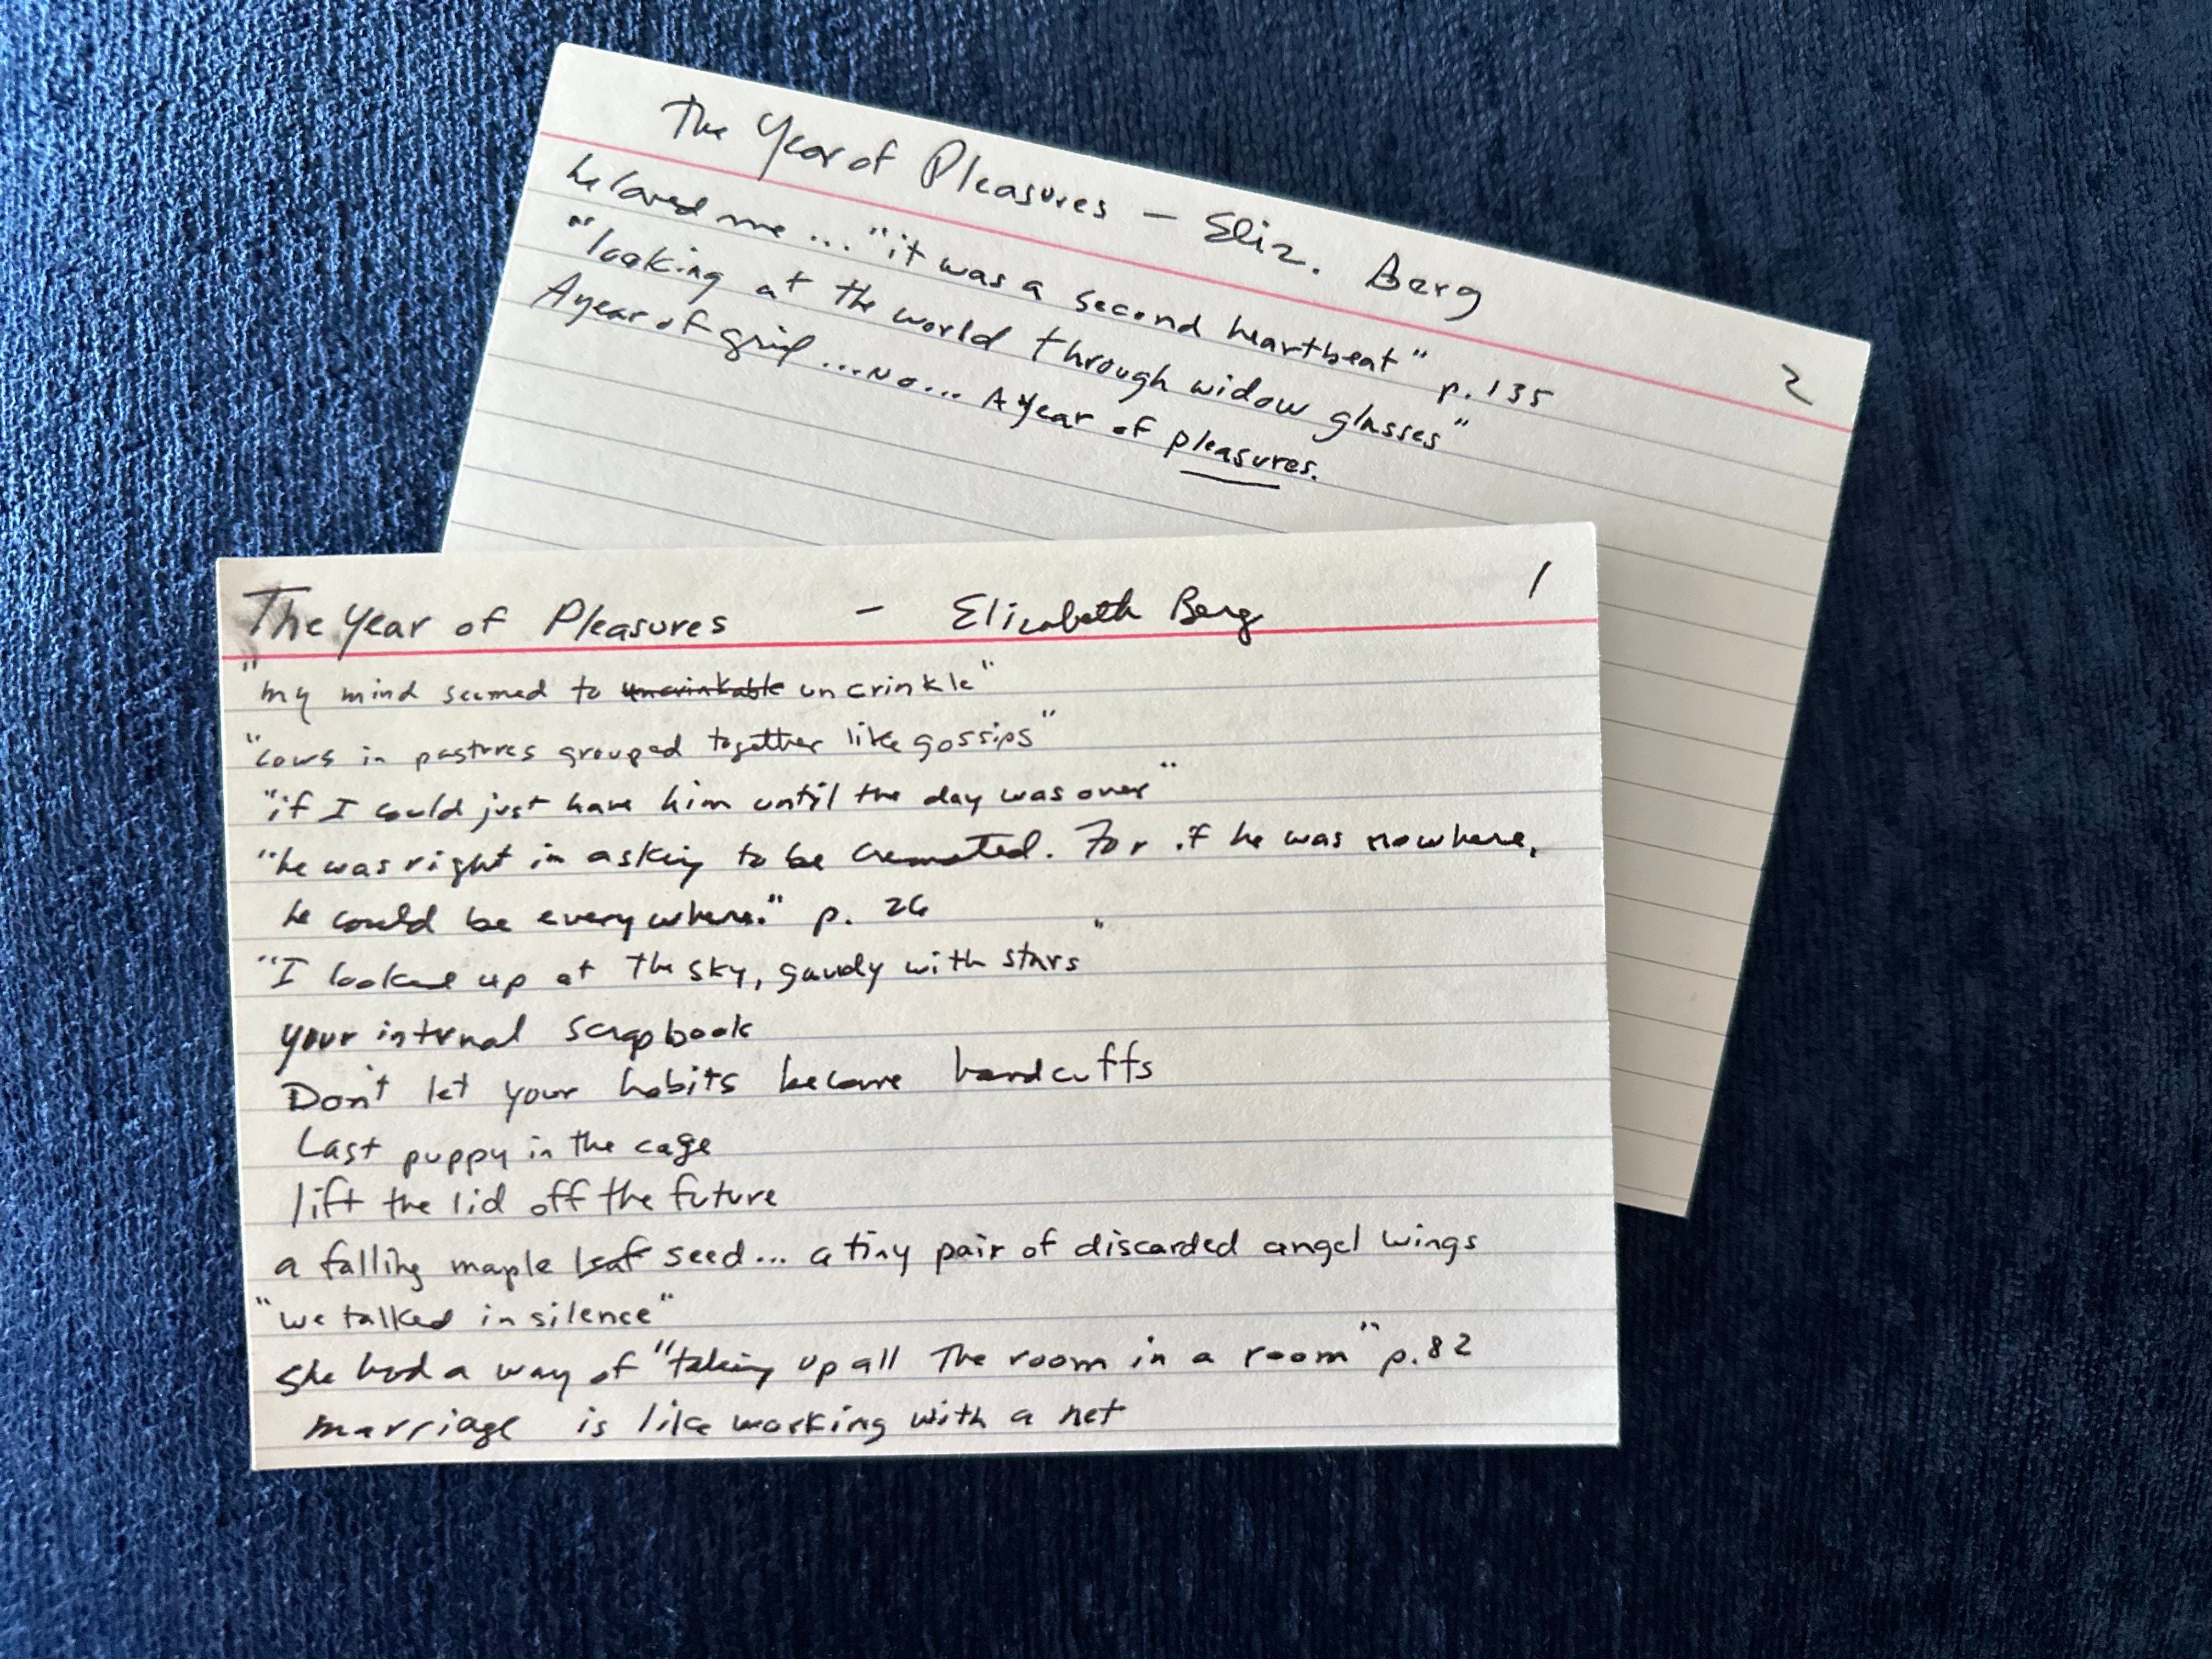 The Year of Pleasures — Eliz. Berg
2
he loved me ... "it was a second heartbeat" p. 135
"looking at the world through widow glasses"
A year of grief ... No ... A year of pleasures.
The Year of Pleasures - Elizabeth Berg
1
"my mind seemed to uncrinkle"
"cows in pastures grouped together like gossips"
"if I could just have him until the day was over"
"he was right in asking to be cremated. For if he was nowhere,
he could be everywhere." p. 26
"I looked up at the sky, gaudy with stars"
your internal scrapbook
Don't let your habits become handcuffs
Last puppy in the cage
lift the lid off the future
a falling maple leaf seed... a tiny pair of discarded angel wings
"we talked in silence"
She had a way of "taking up all the room in a room" p. 82
marriage is like working with a net